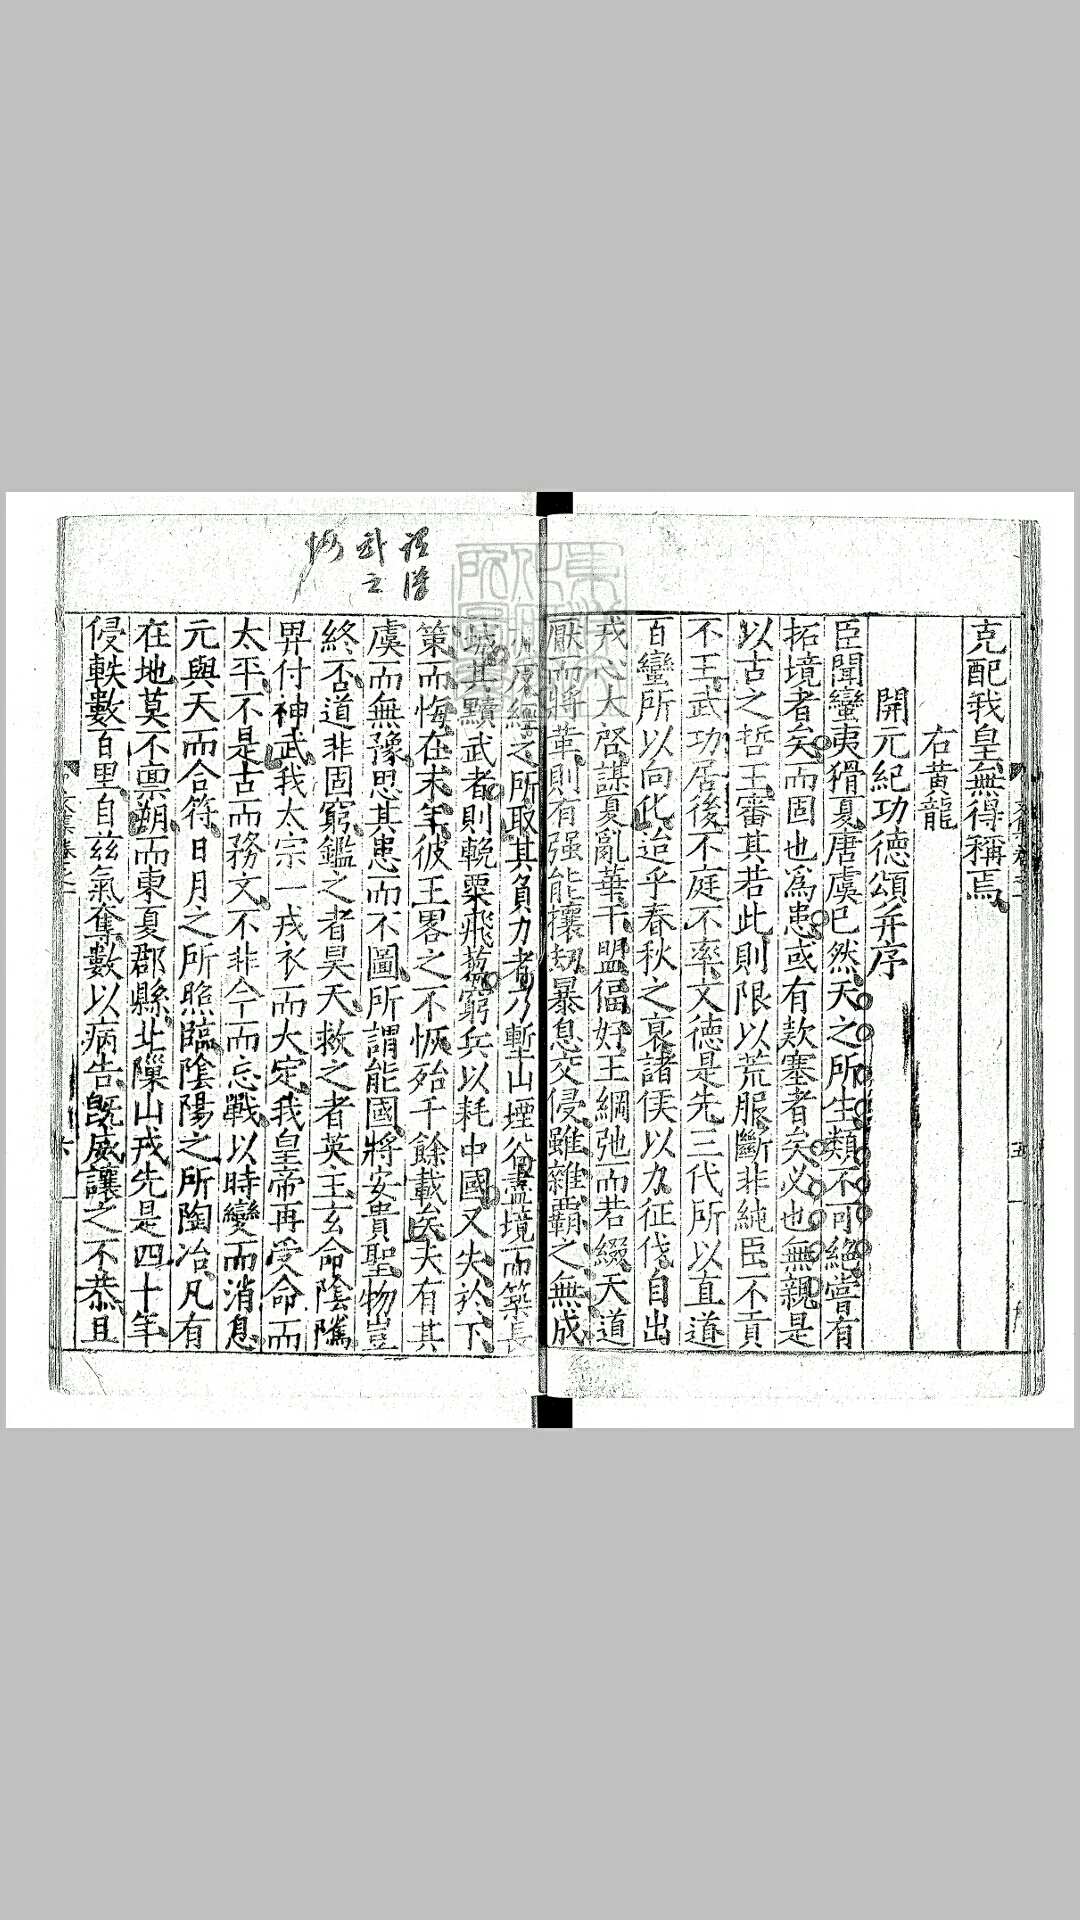 克配我皇無得稱焉
右黃龍
開元紀功德頌并序
臣聞蠻夷猾夏唐虞已然天之所生類不可絕嘗有
拓境者矣而固也為患或有欵塞者矣必也無親是
以古之哲王審其若此則限以荒服斷非純臣不貢
不王武功居後不庭不率文德是先三代所以直道
百蠻所以向化迨乎春秋之衰諸侯以力征伐自出
戎心大啓謀夏亂華干盟偪好王綱弛而若綴天道
厭而將革則有强能攘刼暴息交侵雖雜霸之無成
之所取其負力者乃塹山堙谷盡境而築長
城其黷武者則輓粟飛蒭窮兵以耗中國又失於下
策而悔在末年彼王畧之不恢殆千餘載矣夫有其
虞而無豫思其患而不圖所謂能國將安貴聖物豈
終否道非固窮鑑之者昊天救之者英主玄命陰騭
畀付神武我太宗一戎衣而大定我皇帝再受命而
太平不是古而務文不非今而忘戰以時變而消息
元與天而合符日月之所照臨陰陽之所陶冶凡有
在地莫不禀朔而東夏郡縣北隟山戎先是四十年
侵軼數百里自茲氣奪數以病告旣威讓之不恭且